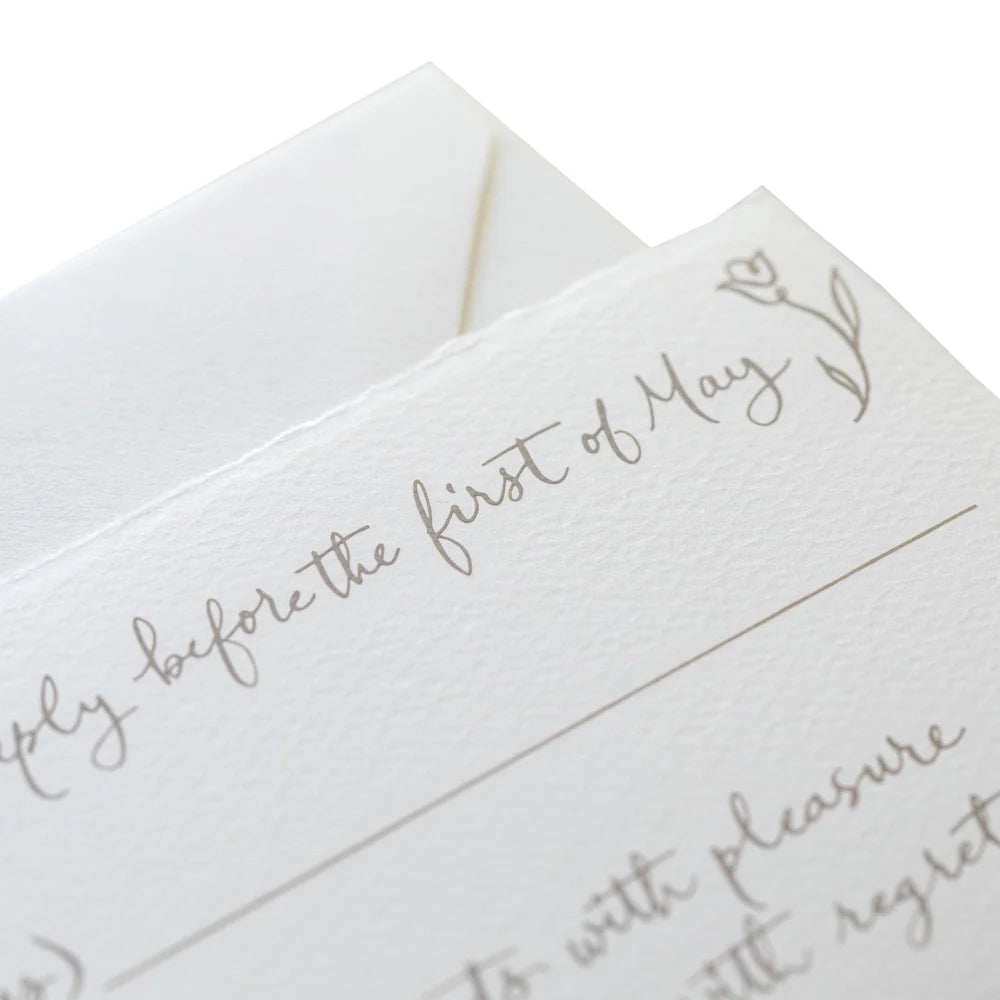 before the first of May
with pleasure
with regret